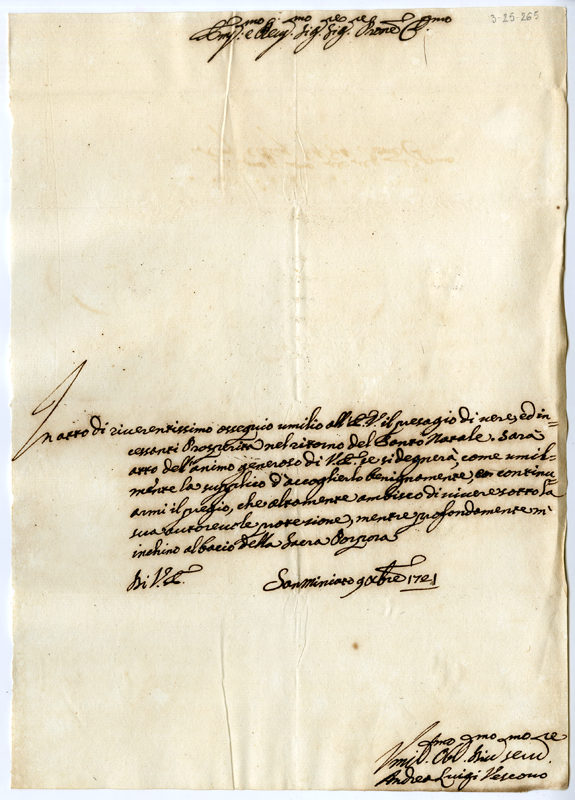 3-25-265
Em.mo e Rev.mo Sig.re Sig.re Prone Col.mo
In atto di riverentissimo ossequio umilio all'E. V. il presagio di vere, ed in=
cessanti Prosperità nel ritorno del Santo Natale. Sarà
atto dell'animo generoso di V. E. se si degnerà, come umil=
mente la supplico d'accoglierlo benignamente, e continu=
armi il pregio, che altamente ambisco di vivere sotto la
sua autoreuole protezione, mentre profondamente m'
inchino al bacio della Sacra Porpora
Di V. E.
San Miniato 9 Xbre 1721
Umil.mo Obl.mo Div.mo Serv.re
Andrea Luigi Vescovo